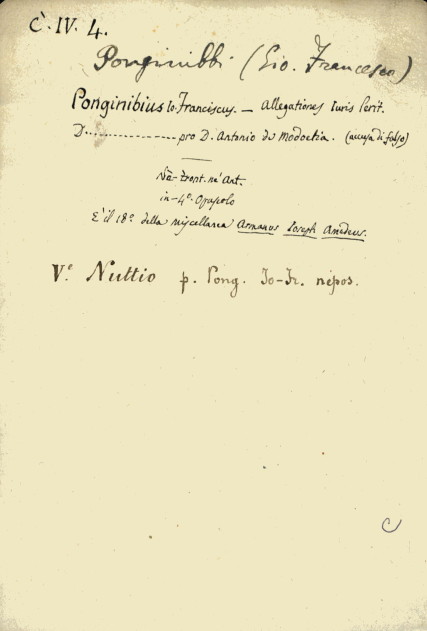 C. IV. 4.
Ponginibbi (Gio. Francesco)
Ponginibius Io. Franciscus. — Allegationes Iuris Perit.
D................ pro D. Antonio de Modoetia. (accusa di falso)
in-4º. Opuscolo
E' il 18º della miscellanea Armanus Ioseph Amedeus.
V.e Nuttio p. Pong. Io-Fr. nepos.